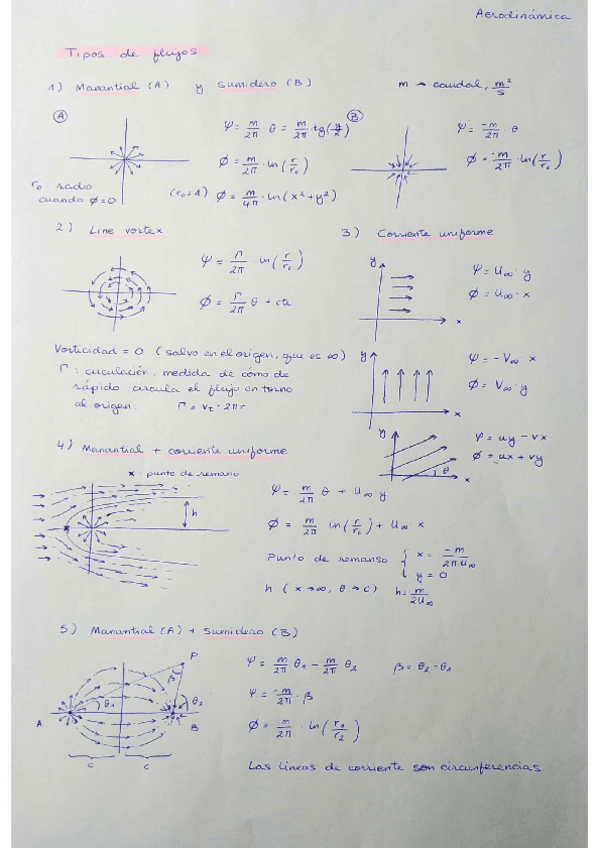 Aerodinámica
Tipos de flujos
1) Manantial (A) y Sumidero (B) m → caudal, m²/s
A
ψ = m/2π θ = m/2π · tg(y/x)
ϕ = m/2π · ln(r/r₀)
r₀: radio
cuando ϕ=0
(r₀=1) ϕ = m/4π · ln(x²+y²)
B
ψ = -m/2π · θ
ϕ = -m/2π · ln(r/r₀)
2) Line vortex
ψ = Γ/2π · ln(r/r₀)
ϕ = Γ/2π θ + cte
Vorticidad = 0 (salvo en el origen, que es ∞)
Γ: circulación, medida de cómo de
rápido circula el flujo en torno
al origen. Γ = v_t · 2πr
3) Corriente uniforme
y
x
ψ = U∞ · y
ϕ = U∞ · x
y
x
ψ = - V∞ · x
ϕ = V∞ · y
y
θ
x
ψ = uy - vx
ϕ = ux + vy
4) Manantial + corriente uniforme
x: punto de remanso
h
ψ = m/2π θ + U∞ y
ϕ = m/2π ln(r/r₀) + U∞ x
Punto de remanso { x = -m/2πU∞
y = 0
h (x→∞, θ→0) h = m/2U∞
5) Manantial (A) + Sumidero (B)
P
β
θ₁
θ₂
A
B
c
c
ψ = m/2π θ₁ - m/2π θ₂ β = θ₂ - θ₁
ψ = -m/2π · β
ϕ = m/2π · ln(r₁/r₂)
Las líneas de corriente son circunferencias